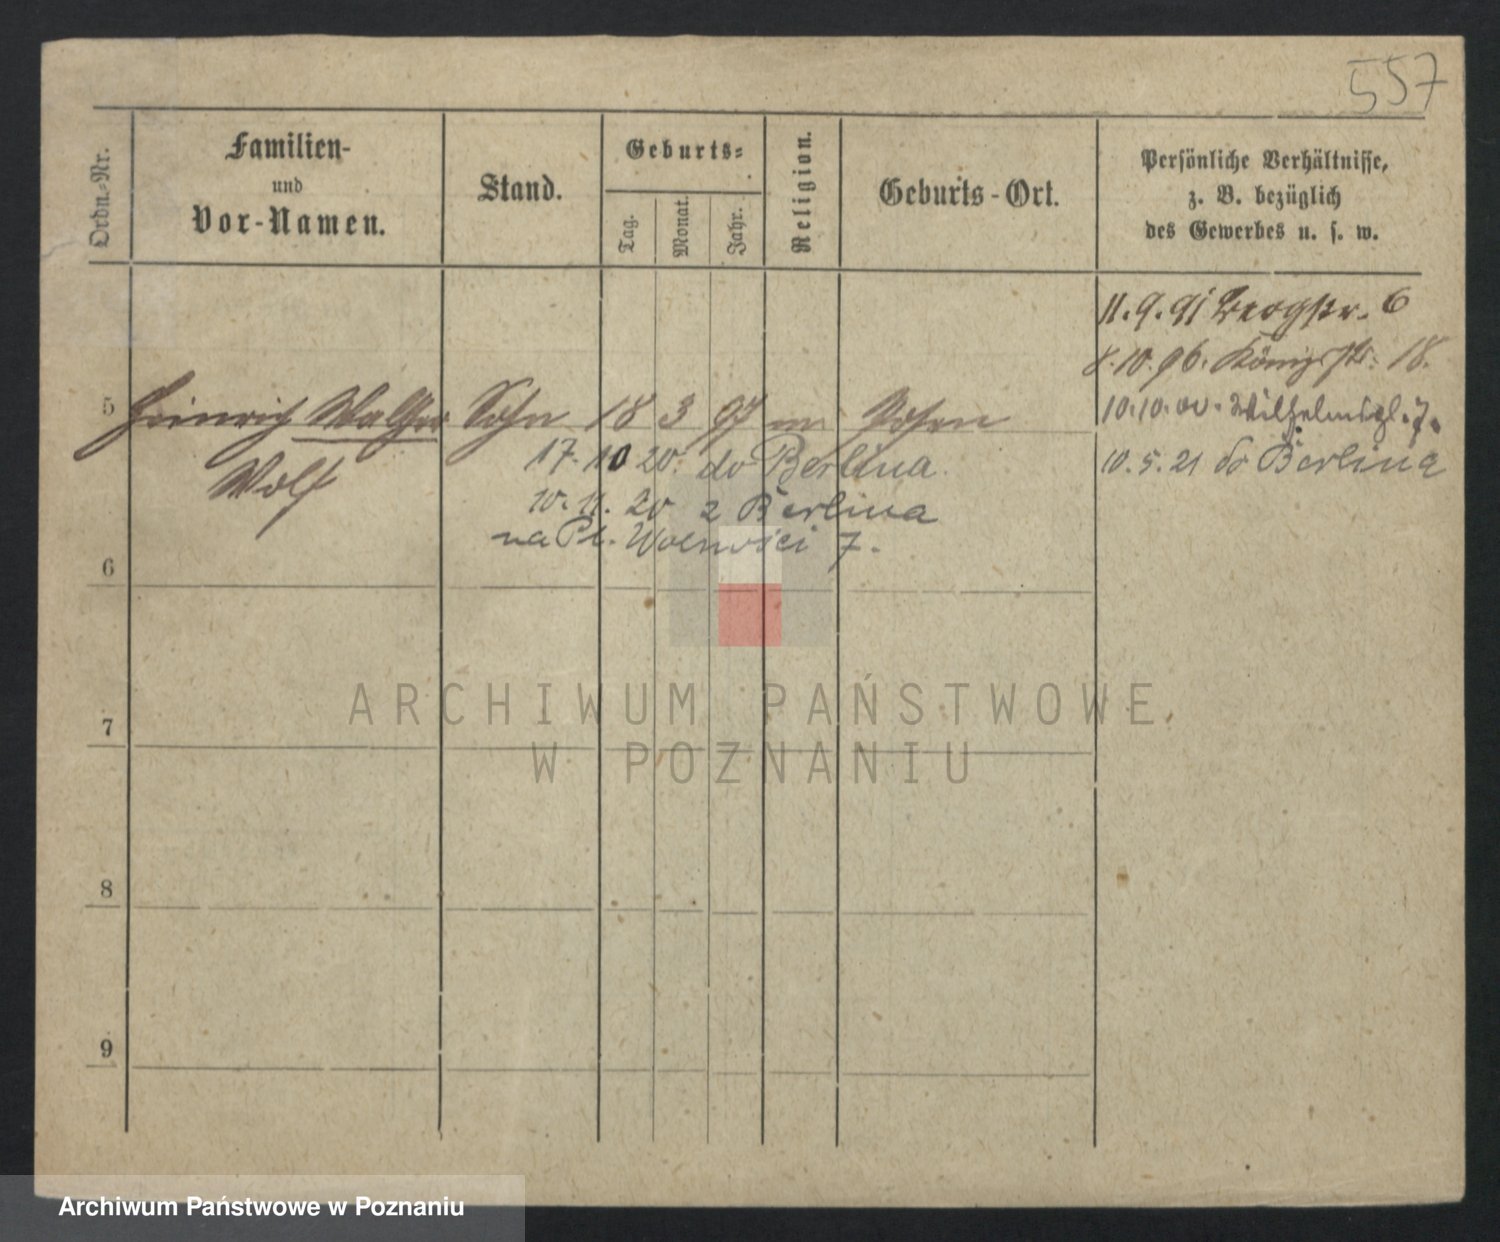 557
Ordn.-Nr.
Familien-
und
Vor-Namen.
Stand.
Geburts-
Tag.
Monat.
Jahr.
Religion.
Geburts-Ort.
Persönliche Verhältnisse,
z. B. bezüglich
des Gewerbes u. s. w.
11.9.91 Bergstr. 6
8.10.96. Königstr. 18.
10.10.00. Wilhelmspl. 7.
10.5.21 do Berlina
5 Heinrich Walther Sohn 18 3 97 m Posen
Wolf
17.10 20. do Berlina
10.11.20 z Berlina
na Pl. Wolności 7.
6
7
8
9
ARCHIWUM PAŃSTWOWE
W POZNANIU
Archiwum Państwowe w Poznaniu